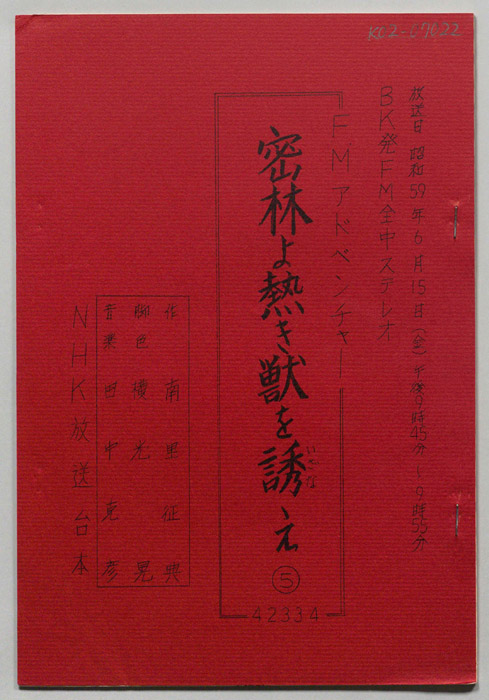 K02-07622
放送日 昭和59年6月15日(金)午後9時45分~9時55分
BK発FM全中ステレオ
FMアドベンチャー
密林よ熱き獣を誘え ⑤
いざな
42334
作 南里征典
脚色 横光晃
音楽 田中克彦
NHK放送台本